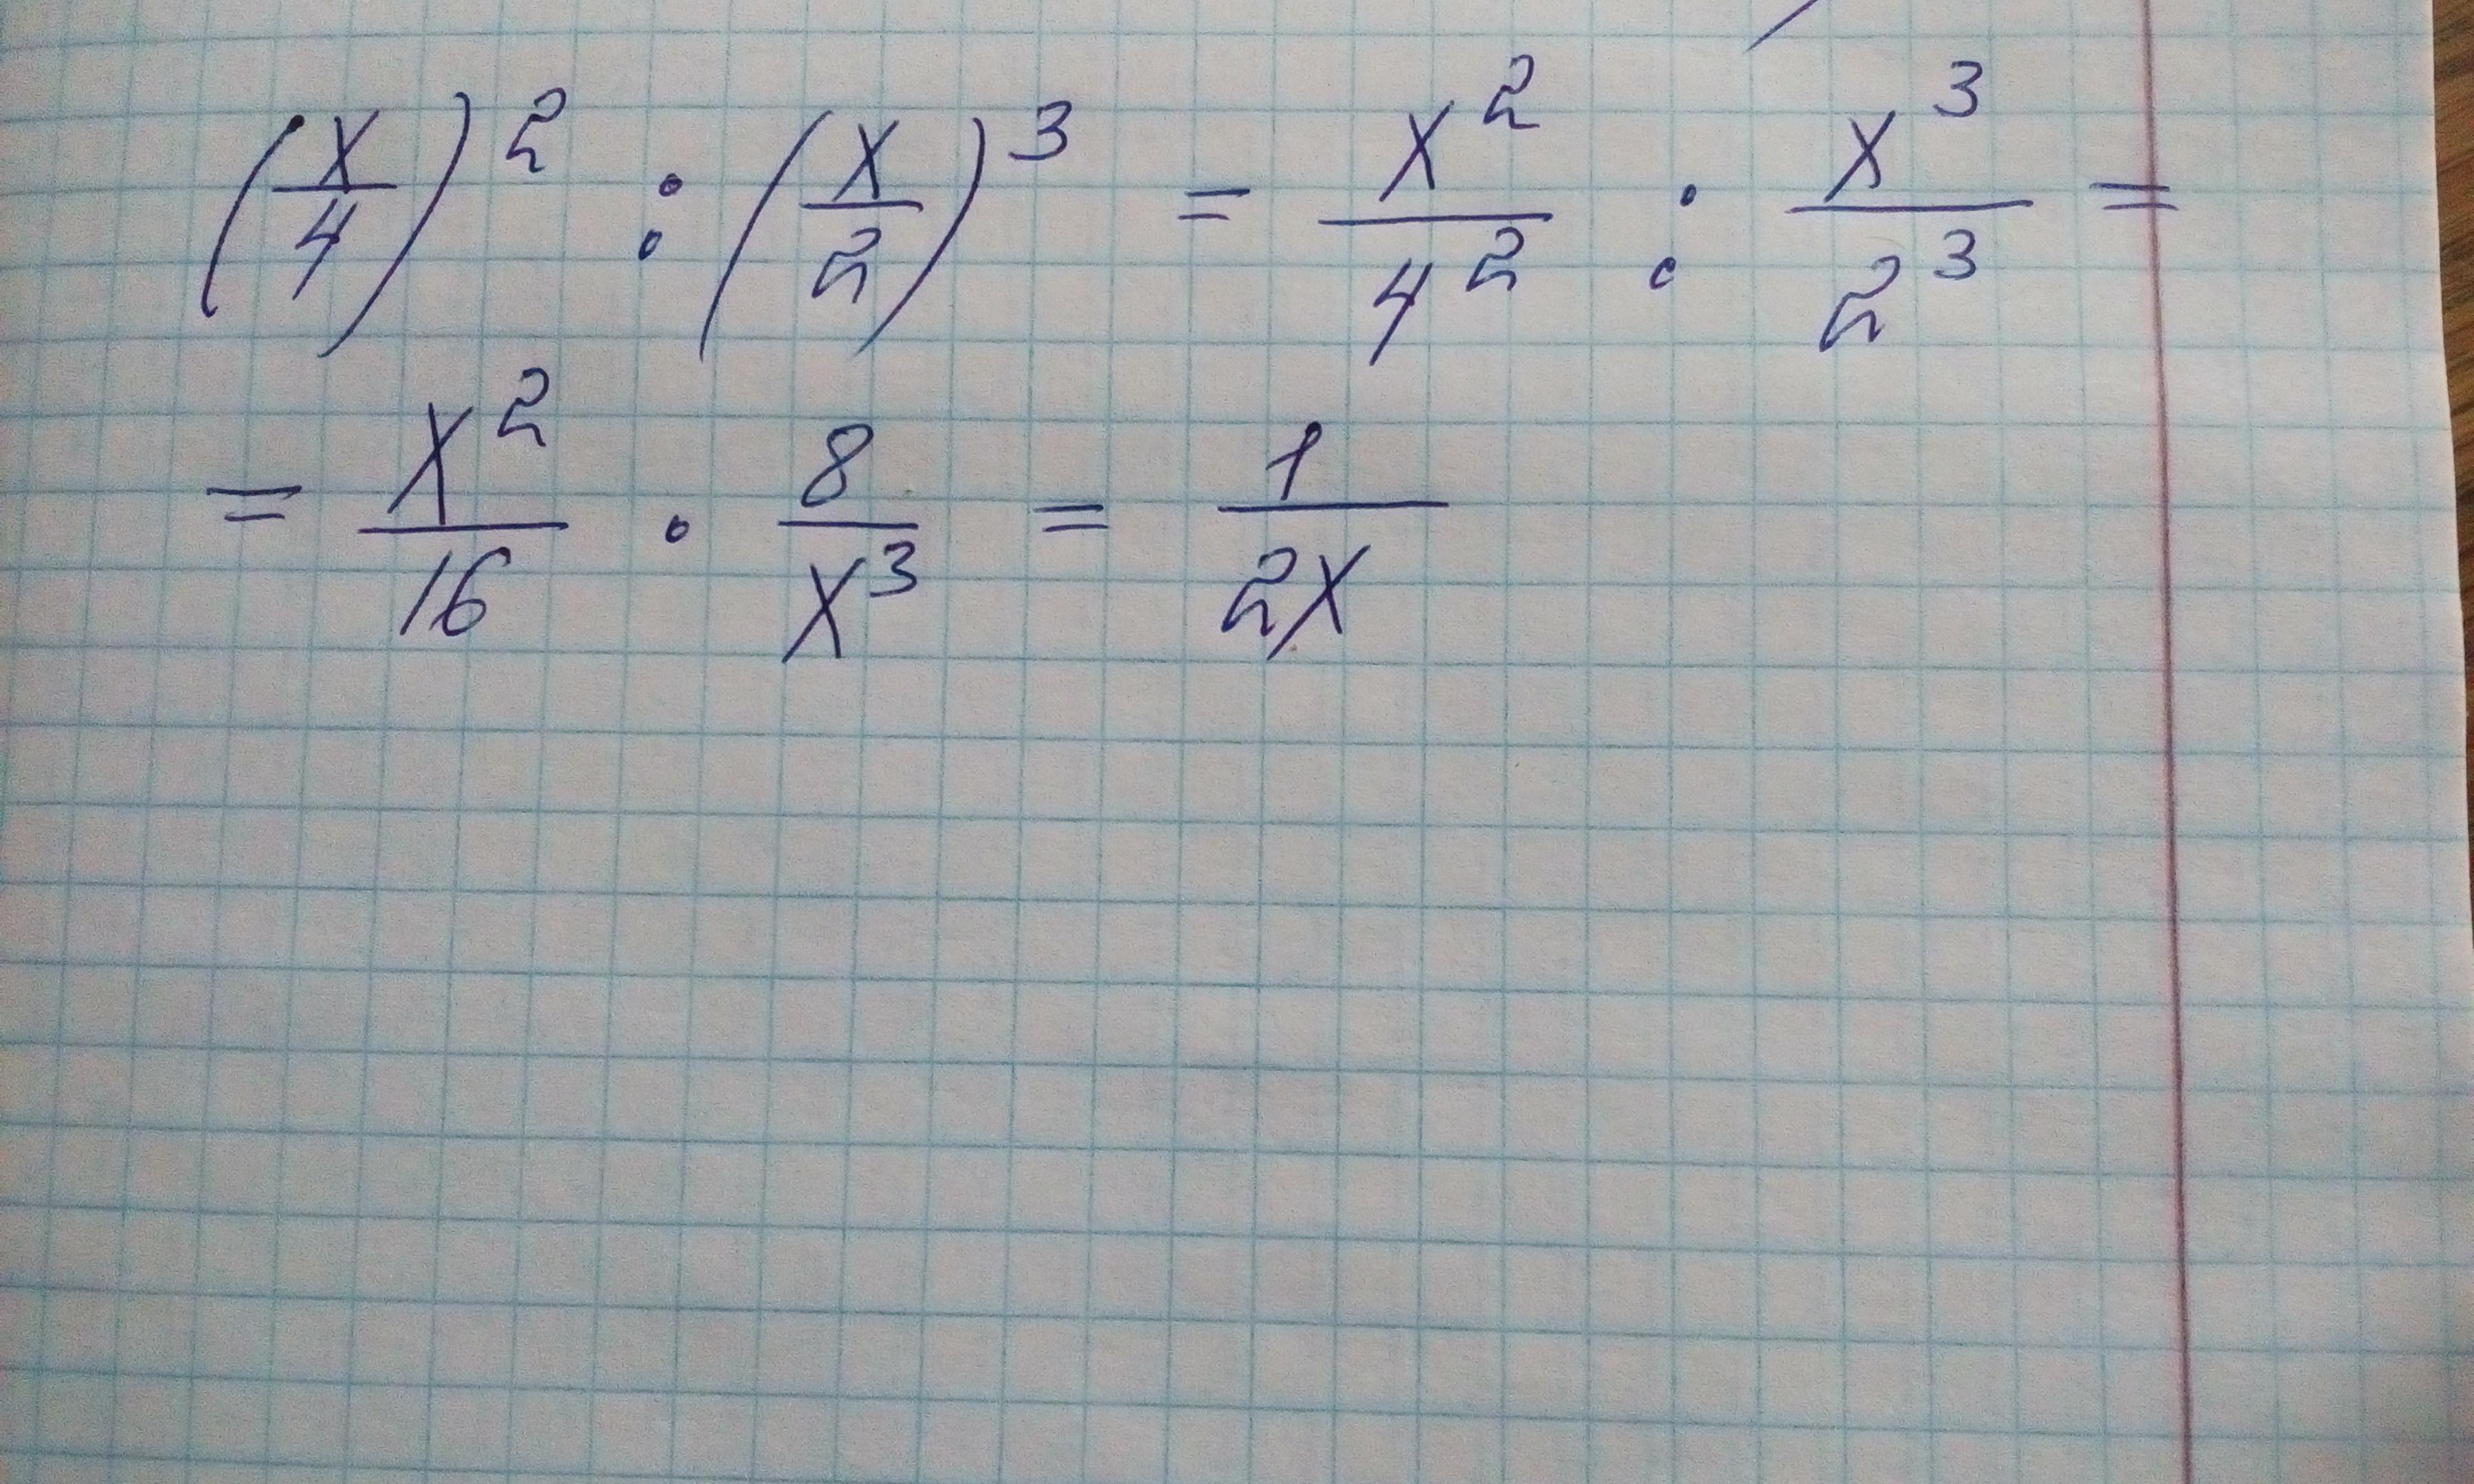 (x/4)² : (x/2)³ = x²/4² : x³/2³ =
= x²/16 · 8/x³ = 1/2x